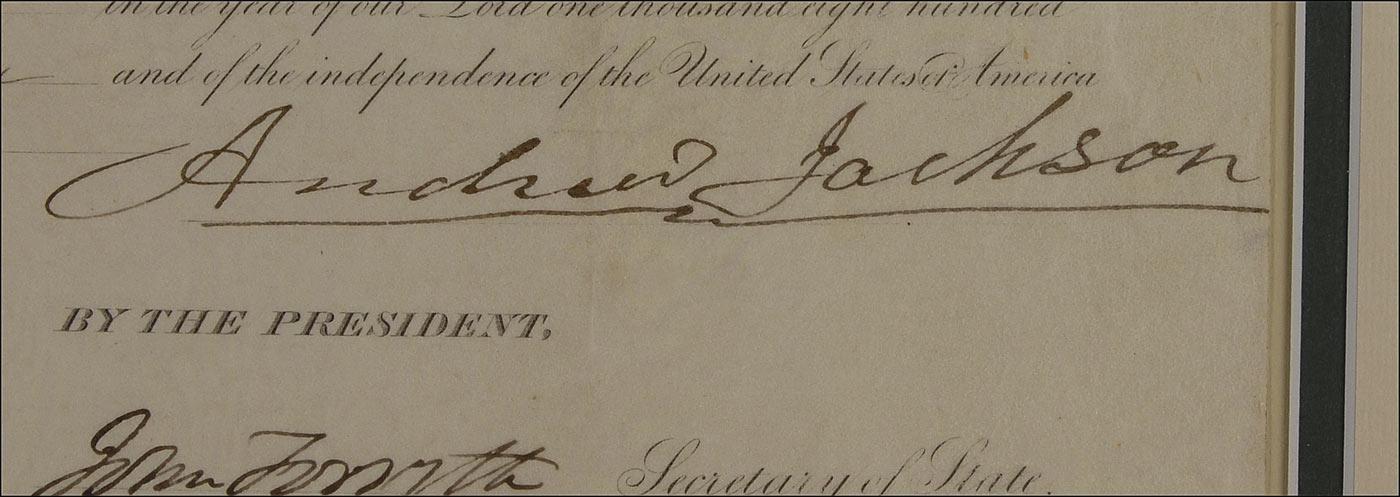 in the year of our Lord one thousand eight hundred
and of the independence of the United States of America
Andrew Jackson
BY THE PRESIDENT,
John Forsyth Secretary of State.